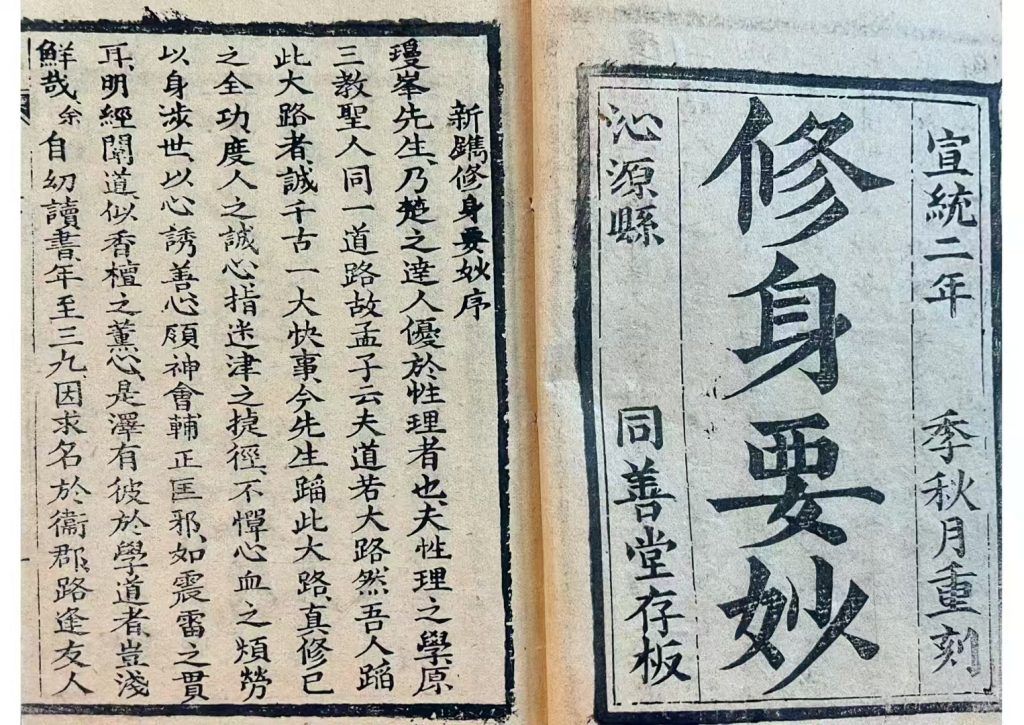 宣統二年 季秋月重刻
修身要妙
沁源縣 同善堂存板
新鐫修身要妙序
瓊峯先生、乃楚之達人優於性理者也、夫性理之學原
三教聖人同一道路故孟子云夫道若大路然吾人蹈
此大路者、誠千古一大快事、今先生蹈此大路、真修己
之全功、度人之誠心、指迷津之捷徑、不憚心血之煩勞
以身涉世、以心誘善、心頤神會輔正匡邪、如震雷之貫
耳、明經闡道、似香檀之薰心、是澤有彼於學道者、豈淺
鮮哉、余自幼讀書、年至三九、因求名於衞郡、路逢友人